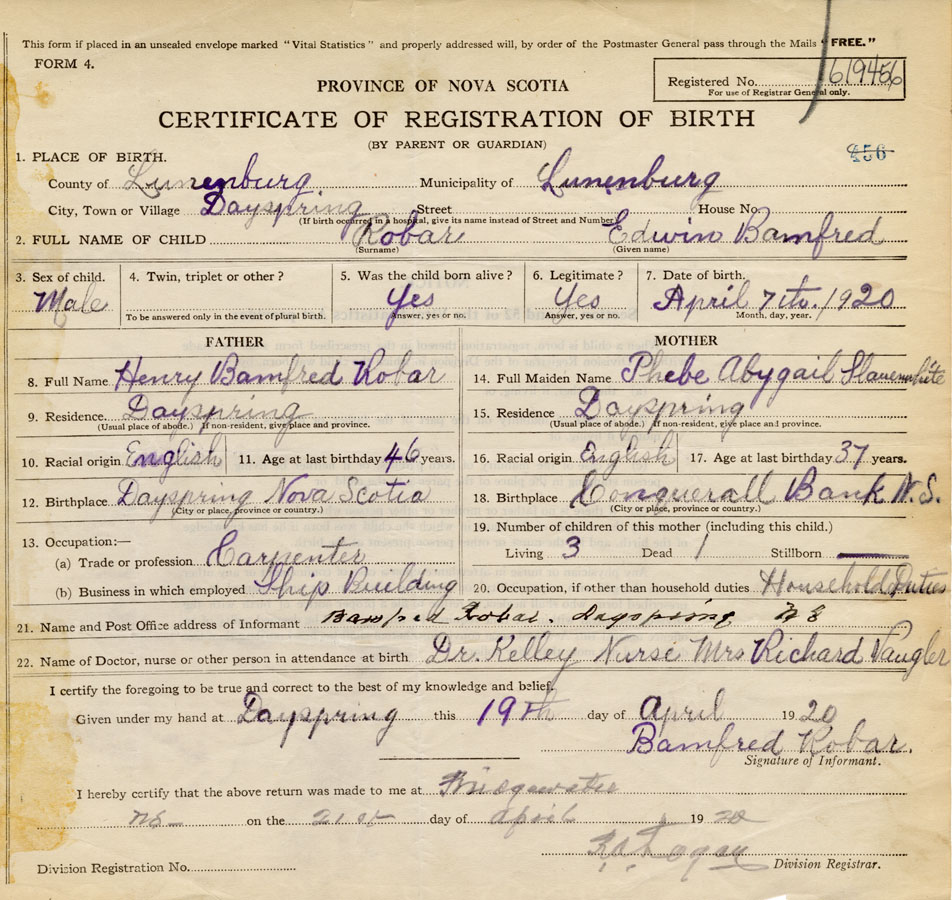 This form if placed in an unsealed envelope marked "Vital Statistics" and properly addressed will, by order of the Postmaster General pass through the Mails "FREE."
FORM 4.
Registered No. 619456
For use of Registrar General only.
PROVINCE OF NOVA SCOTIA
CERTIFICATE OF REGISTRATION OF BIRTH
(BY PARENT OR GUARDIAN)
456
1. PLACE OF BIRTH.
County of Lunenburg. Municipality of Lunenburg
City, Town or Village Dayspring Street House No.
(If birth occurred in a hospital, give its name instead of Street and Number)
2. FULL NAME OF CHILD Kobar Edwin Bamfred
(Surname) (Given name)
3. Sex of child. 4. Twin, triplet or other? 5. Was the child born alive? 6. Legitimate? 7. Date of birth.
Male Yes Yes April 7th. 1920
To be answered only in the event of plural birth. Answer, yes or no. Answer, yes or no. Month, day, year.
FATHER MOTHER
8. Full Name Henry Bamfred Kobar 14. Full Maiden Name Phebe Abygail Slauenwhite
9. Residence. Dayspring 15. Residence Dayspring
(Usual place of abode.) If non-resident, give place and province. (Usual place of abode.) If non-resident, give place and province.
10. Racial origin English 11. Age at last birthday 46 years. 16. Racial origin English 17. Age at last birthday 37 years.
12. Birthplace Dayspring Nova Scotia 18. Birthplace Conquerall Bank N.S.
(City or place, province or country.) (City or place, province or country.)
13. Occupation:— 19. Number of children of this mother (including this child.)
(a) Trade or profession Carpenter Living 3 Dead 1 Stillborn
(b) Business in which employed Ship Building 20. Occupation, if other than household duties Household Duties
21. Name and Post Office address of Informant Bamfred Kobar. Dayspring NS
22. Name of Doctor, nurse or other person in attendance at birth Dr. Kelley Nurse Mrs Richard Naugler
I certify the foregoing to be true and correct to the best of my knowledge and belief.
Given under my hand at Dayspring this 19th day of April 1920
Bamfred Kobar.
Signature of Informant.
I hereby certify that the above return was made to me at Bridgewater
NS on the 21st day of April 1920
Division Registrar.
Division Registration No.